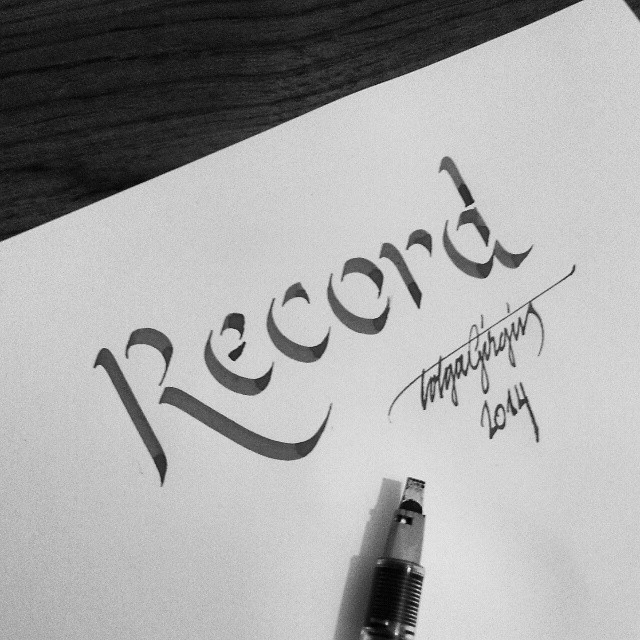 Record
tolgaGirgin
2014